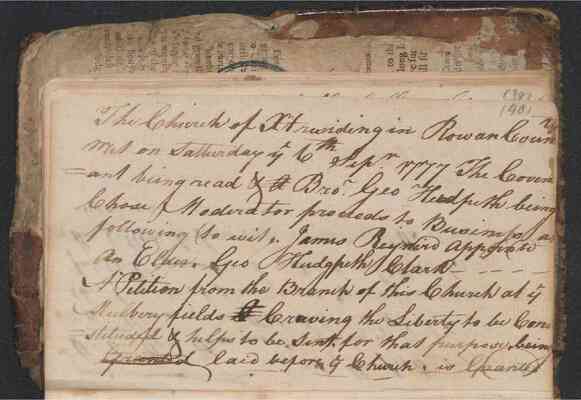 The Church of Xt residing in Rowan Coun
met on Satturday ye 6th Sepr 1777 The Coven
=ant being read & Bro. Geo Hudspeth being
Chose Moderator proceeds to Business as
following to wit. James Reynerd Appointd
An Elder. Geo Hudgpeth Clark - - - - -
A Petition from the Branch of this Church at ye
Mulbery fields Craving the Liberty to be Con
=stituted & helps to be Sent for that purpose being
laid before ye Church. is Granted